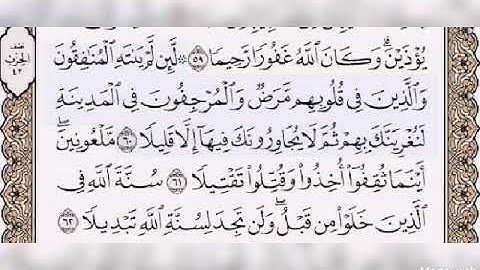 نصف
الحزب
٤٣
يُؤْذَيْنَ ۗ وَكَانَ ٱللَّهُ غَفُورًا رَّحِيمًا ٥٩ ۞ لَّئِن لَّمْ يَنتَهِ ٱلْمُنَٰفِقُونَ
وَٱلَّذِينَ فِى قُلُوبِهِم مَّرَضٌ وَٱلْمُرْجِفُونَ فِى ٱلْمَدِينَةِ
لَنُغْرِيَنَّكَ بِهِمْ ثُمَّ لَا يُجَاوِرُونَكَ فِيهَآ إِلَّا قَلِيلًا ٦٠ مَّلْعُونِينَ ۖ
أَيْنَمَا ثُقِفُوٓا۟ أُخِذُوا۟ وَقُتِّلُوا۟ تَقْتِيلًا ٦١ سُنَّةَ ٱللَّهِ فِى
ٱلَّذِينَ خَلَوْا۟ مِن قَبْلُ ۖ وَلَن تَجِدَ لِسُنَّةِ ٱللَّهِ تَبْدِيلًا ٦٢